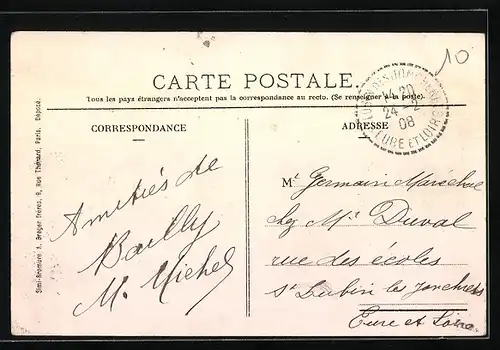 10
CARTE POSTALE
Tous les pays étrangers n'acceptent pas la correspondance au recto. (Se renseigner à la poste).
CORRESPONDANCE
ADRESSE
14 20
24 -2
08
EURE ET LOIR
Simi-Bromure A. Breger frères, 9, Rue Thénard, Paris. Déposé.
Amitiés de
Bailly
M. Michel
Mr Germain Maréchal
chez Mr Duval
rue des écoles
St Lubin les Joncherets
Eure et Loire